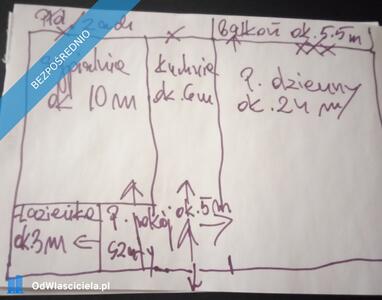 BEZPOŚREDNIO
Balkon ok. 5.5m
ok 10m
Kuchnia
ok. 6m
P. dzienny
ok. 24 m
Łazienka
ok 3m
P. pokój ok. 5m
OdWlasciciela.pl